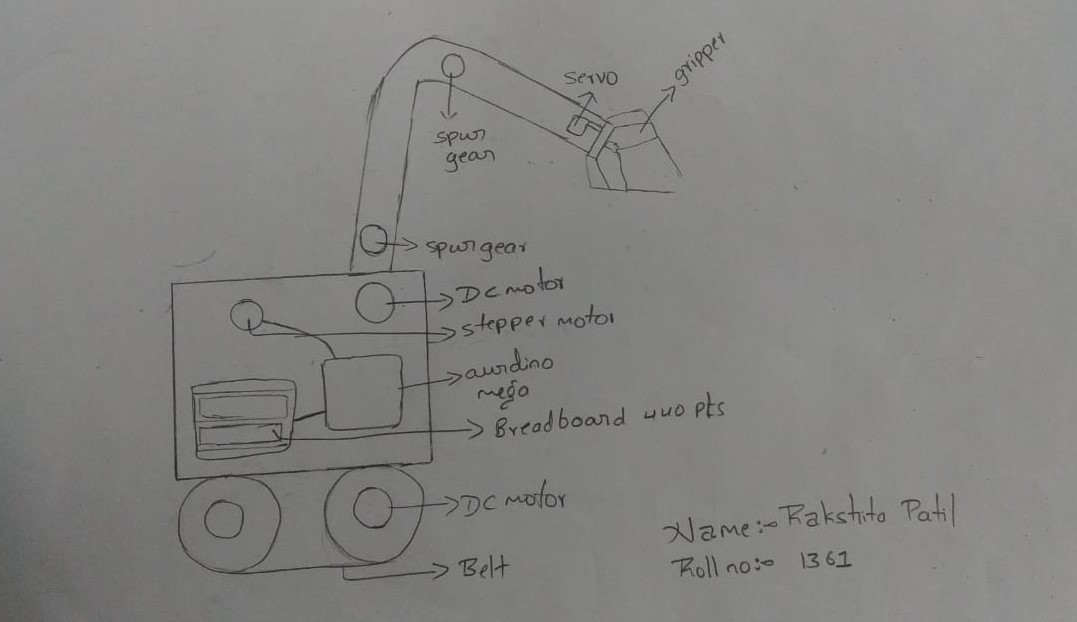 servo
gripper
spur
gear
spur gear
DC motor
stepper motor
aurdino
mega
Breadboard 440 pts
DC motor
Belt
Name:- Rakshita Patil
Roll no:- 1361